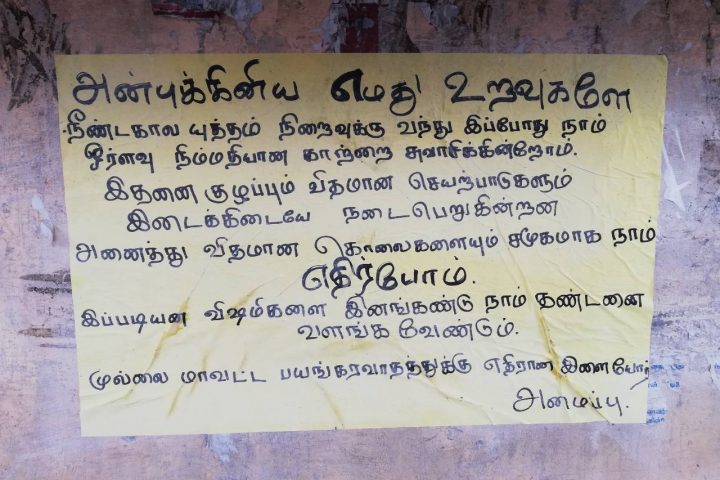 அன்புக்கினிய எமது உறவுகளே
நீண்டகால யுத்தம் நிறைவுக்கு வந்து இப்போது நாம்
ஓர்ளவு நிம்மதியான காற்றை சுவாசிக்கின்றோம்.
இதனை குழப்பும் விதமான செயற்பாடுகளும்
இடைக்கிடையே நடைபெறுகின்றன
அனைத்து விதமான கொலைகளையும் சமூகமாக நாம்
எதிர்ப்போம்.
இப்படியன விஷமிகளை இனங்கண்டு நாம் தண்டனை
வளங்க வேண்டும்.
முல்லை மாவட்ட பயங்கரவாதத்துக்கு எதிரான இளையோர்
அமைப்பு.